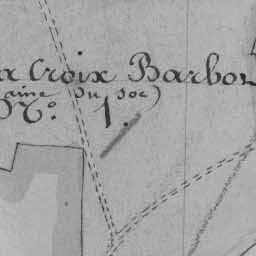 a Croix Barbo
aine Du Soc)
N.º 1.